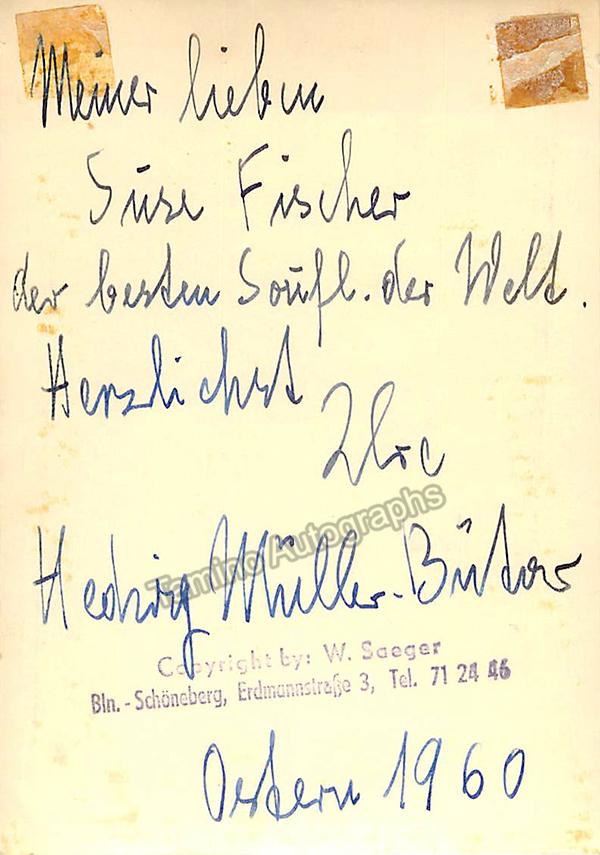 Meiner lieben
Suse Fischer
der besten Soufl. der Welt.
Herzlichst
Ihre
Tamino Autographs
Hedwig Müller-Bütow
Copyright by: W. Saeger
Bln.-Schöneberg, Erdmannstraße 3, Tel. 71 24 46
Ostern 1960